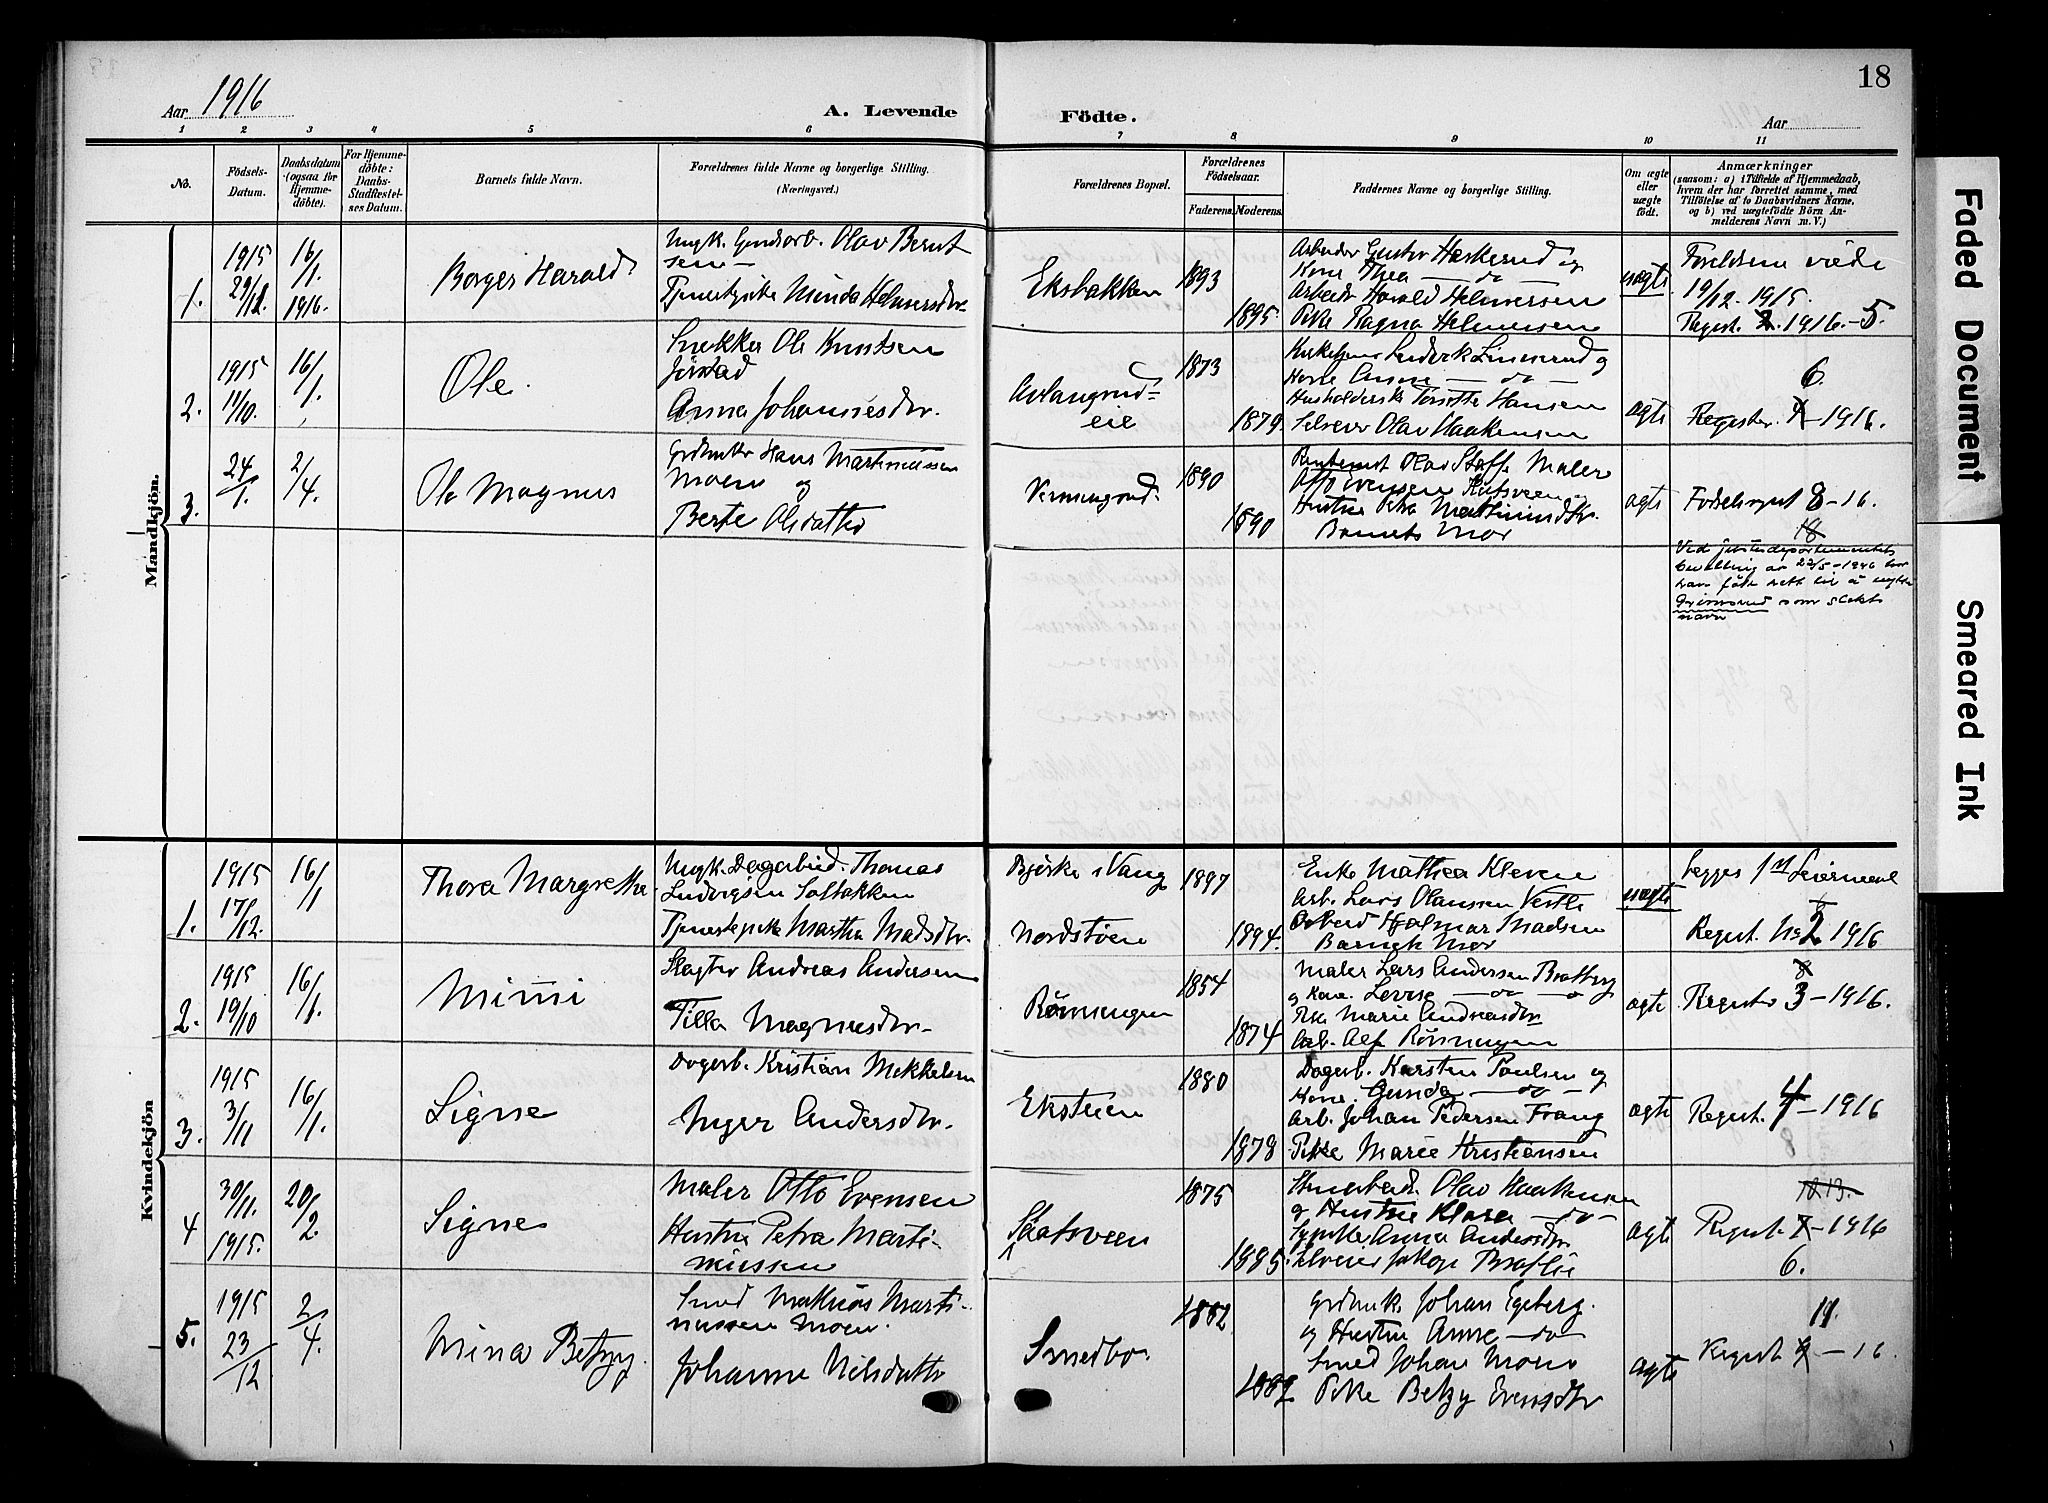 18
Aar 1916
A. Levende
Födte.
Aar
1 2 3 4 5 6 7 8 9 10 11
No.
Födsels-
Datum.
Daabsdatum
(ogsaa for
Hjemme-
döbte).
For Hjemme-
döbte:
Daabs-
Stadfæstel-
ses Datum.
Barnets fulde Navn.
Forældrenes fulde Navne og borgerlige Stilling.
(Næringsvei.)
Forældrenes Bopæl.
Forældrenes
Födselsaar.
Faderens.
Moderens.
Faddernes Navne og borgerlige Stilling.
Om ægte
eller
uægte
födt.
Anmærkninger
(saasom: a) i Tilfælde af Hjemmedaab,
hvem der har forrettet samme, med
Tilföielse af to Daabsvidners Navne,
og b) ved uægtefödte Börn An-
melderens Navn m. V.)
Mandkjön.
1.
1915
29/12.
16/1.
1916.
Borger Harald
Ungk. Gaardsarb. Olav Bernt
sen
Tjenestepike Minda Helmersdtr.
Eksbakken
1893
1895.
Arbeider Gustav Haskerud og
Kone Thea — do
Arbeider Harald Helmersen
Pike Ragna Helmersen
uægte
Foreldrene viede
19/12. 1915.
Regist. 2. 1916. - 5.
2.
1915
11/10.
16/1.
Ole.
Snekker Ole Knutsen
Jörstad
Anna Johannesdtr.
eie
1873
1879.
Kone Anne — do —
Hansen
Olav Haakensen
ægte
6.
Register. 4 - 1916.
3.
24/1.
2/4.
Ole Magnus
Hans Martiniussen
Moen og
Berte Olsdatter
1890
1890
Olav Staffe Maler
Otto Evensen
Hustru Petra Martiniusdtr.
Barnets Mor
ægte
Födselsregist 8 - 16.
18
Ved justisdepartementets
bevilling av 22/5 - 1946 har
han fått rett til å nytte
Grimsrud som slekts
navn
Kvindekjön
1.
1915
17/12.
16/1
Thora Margrethe
Ungk. Dagarbeid. Thomas
Ludvigsen Solbakken
Tjenestepike Martha Madsdtr.
Bjørke i Vang
Nordstøen
1897
1894.
Enke Mathea Kleven
Arb. Lars Olaussen Vestli
Arbeid Hjalmar Madsen
Barnets Mor
uægte
Begges 1st Leiermaal
Regist. No 2 1916
2.
1915
19/10
16/1.
Mimmi
Slagter Andreas Andersen
Tilla Magnusdtr.
Rønningen
1854
1874
Maler Lars Andersen Bratberg
og Kone. Lovise — do — o
Pike Marie Andreasdtr
Arb. Alf Rønningen
ægte
8
Register 3 - 1916.
3.
1915
3/11
16/1.
Signe
Dagarb. Kristian Mikkelsen
Inger Andersdtr.
Eksteien
1880
1878
Dagarb. Karsten Paulsen og
Kone. Gunda — do —
Arb. Johan Pedersen Frang
Pike Marie Kristiansen
ægte
Regist. 4 - 1916
4
30/11.
1915.
20/2.
Signe
Maler Otto Evensen
Hustru Petra Marti-
niussen
1875
1885.
Olav Haakensen
og Hustru Klara — do —
Sypike Anna Andersdtr.
Selveier Jakop Braflie
ægte
12 13.
Regist. 7 - 1916
6.
5.
1915
23/12
2/4.
Mina Betzy.
Smed Mathias Marti-
nussen Moen.
Johanne Nilsdatter
Smedbo.
1882
1882
Grdbruk. Johan Egeberg.
og Hustru Anne — do —
Smed Johan Moen
Pike Betzy Evensdtr
ægte
11.
Regist 9 - 16.
Faded Document
Smeared Ink